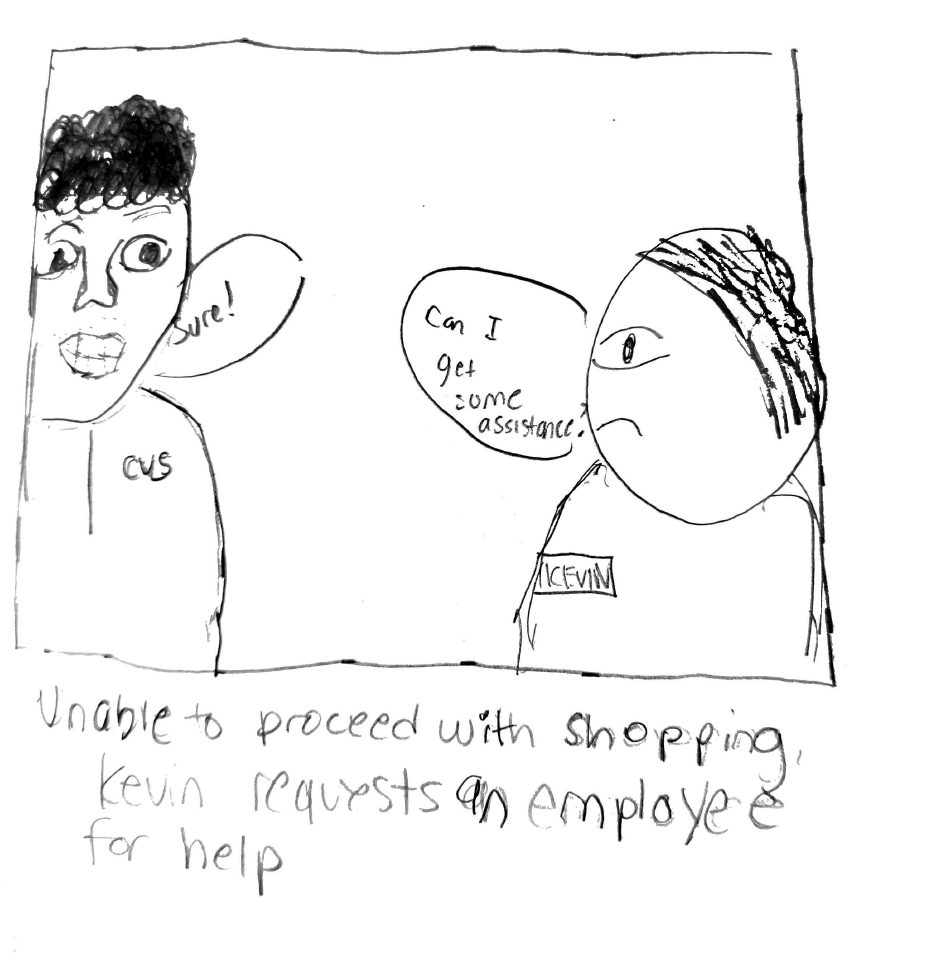 Sure!
Can I
get
some
assistance?
CVS
KEVIN
Unable to proceed with shopping,
Kevin requests an employee
for help